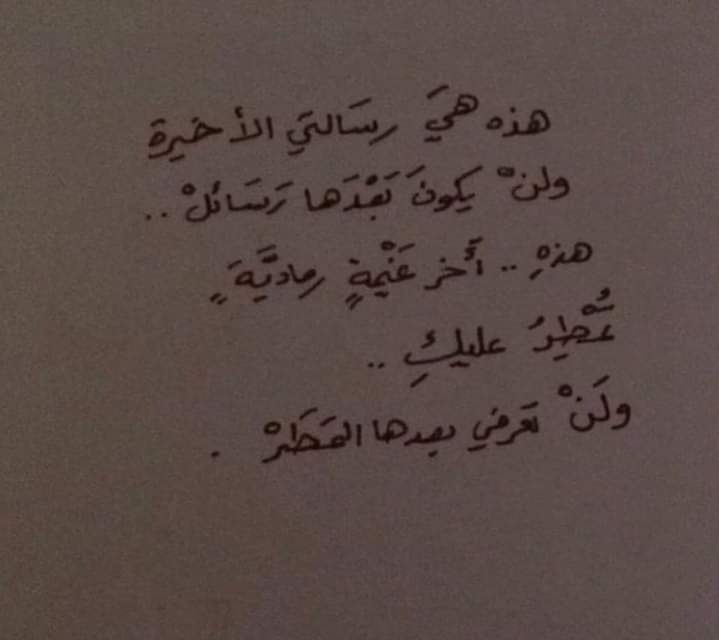 هذه هيَ رسَالتي الأخيرة
ولنْ يكونَ بَعْدَها رَسَائلْ ..
هذهِ .. أَخر غَيْمةٍ رماديَّةٍ
تُمْطِرُ عليكِ ..
ولَنْ تعرفي بعدها المَطَرْ .